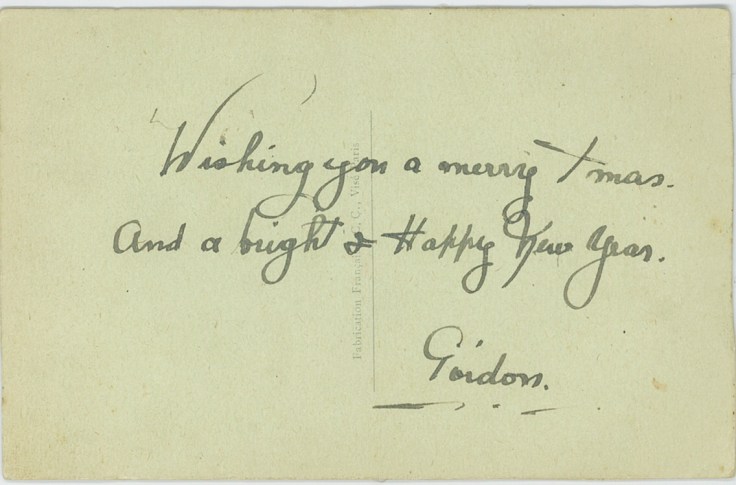 Wishing you a merry Xmas.
And a bright & Happy New Year.
Gordon.
Fabrication Française
C., Visé Paris